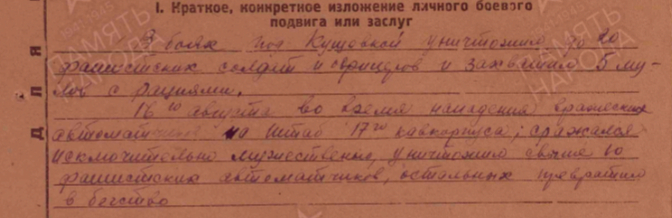 I. Краткое, конкретное изложение личного боевого
подвига или заслуг
В боях под Кущевкой уничтожил до 20
фашистских солдат и офицеров и захватил 5 му-
лов с рациями.
16го августа во время нападения вражеских
автоматчиков на штаб 17го кавкорпуса, сражался
исключительно мужественно, уничтожил свыше 10
фашистских автоматчиков, остальных превратил
в бегство
ДЛЯ
ПАМЯТЬ
НАРОДА
ПАМЯТЬ
НАРОДА